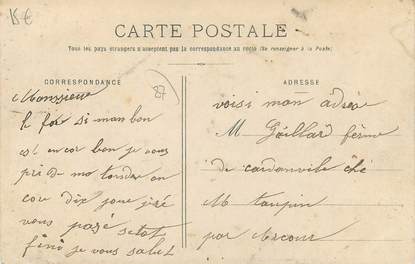 15€
CARTE POSTALE
Tous les pays étrangers n'acceptent pas la correspondance au recto (Se renseigner à la Poste)
CORRESPONDANCE
ADRESSE
87
Monssieur
le for si man bon
est encor bon je vous
pri de mo tandre an
cou dix joure jiré
vous pagé sitot
fini je vous salut
voisi mon adrese
M Gaillard ferme
de cardanvile ché
M taupin
par